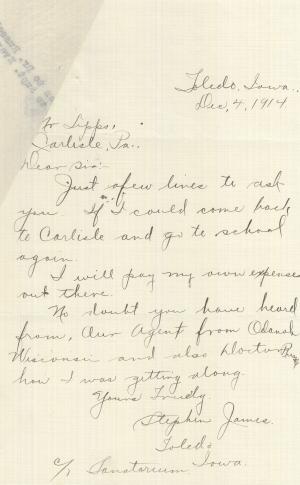 Toledo, Iowa.,
Dec, 4, 1914
Mr Lipps,
Carlisle, Pa.,
Dear Sir:-
Just afew lines to ask
you. If I could come back
to Carlisle and go to school
again.
I will pay my own expenses
out there.
No doubt you have heard
from, Our Agent from Odanah
Wisconsin and also Doctor
how I was getting along.
Yours Truely.
Stephen James.
Toledo
c/o Sanatorium. Iowa.